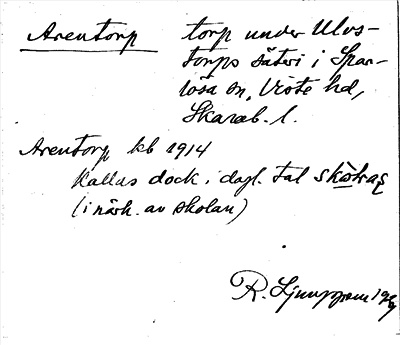 Arentorp torp under Ulvs-
torps säteri i Spar-
lösa sn, Viste hd,
Skarab. l.
Arentorp kb 1914
kallas dock i dagl. tal
(i närh. av skolan)
R. Ljunggren